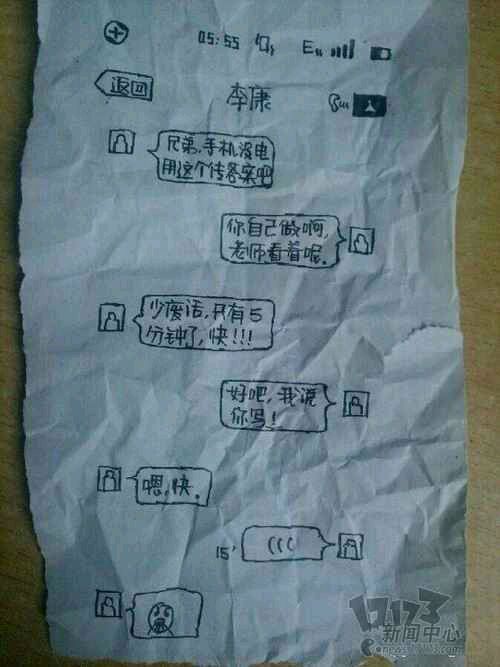 05:55 E
返回
李康
兄弟,手机没电
用这个传答案吧
你自己做啊,
老师看着呢.
少废话,只有5
分钟了,快!!!
好吧,我说
你写!
嗯,快.
15'
17173
新闻中心
news.17173.com